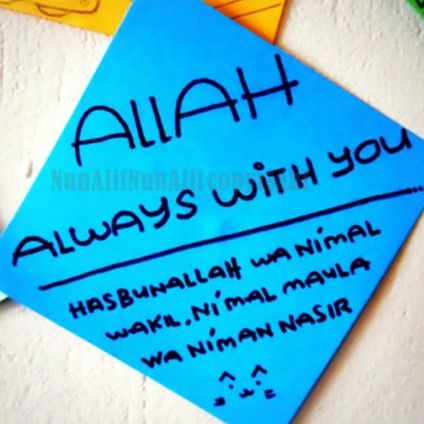 ALLAH
NunAlifNunAlif
ALWAYS WITH YOU
HASBUNALLAH WA NI'MAL
WAKIL, NI'MAL MAULA
WA NI'MAN NASIR